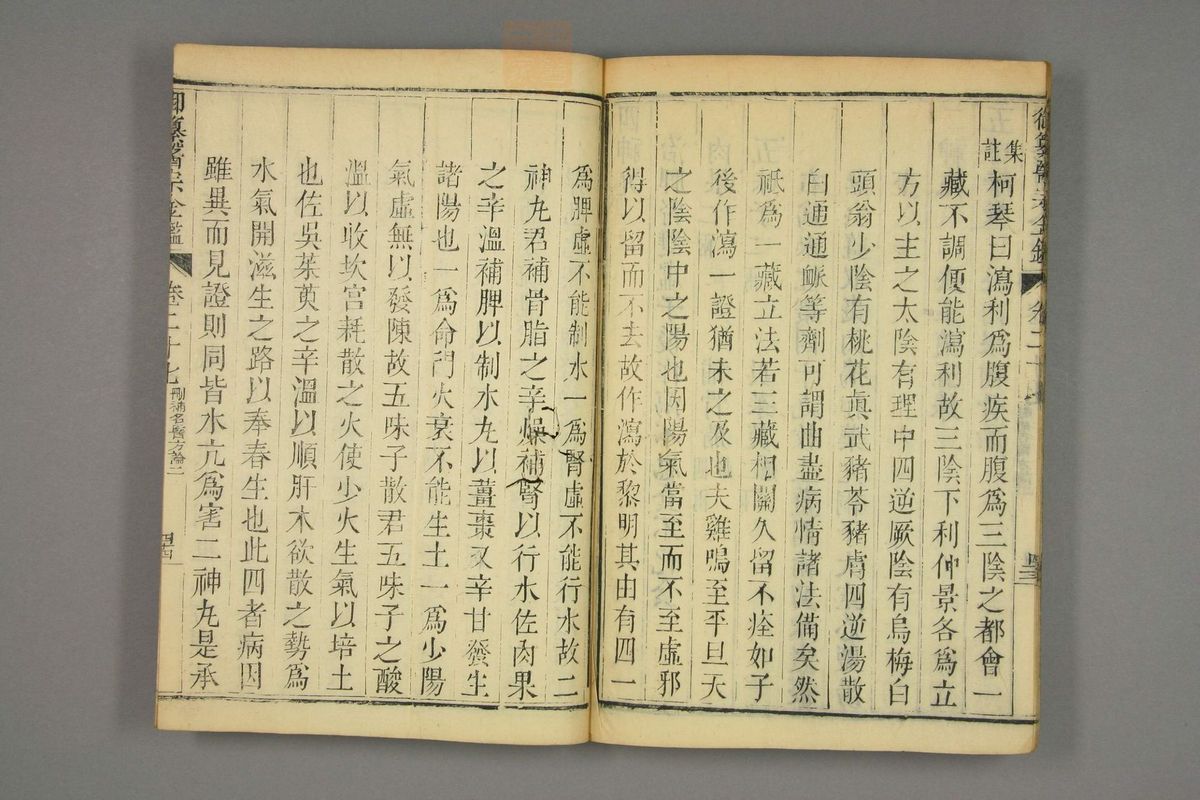 御纂醫宗金鑑 卷二十
集註柯琴曰瀉利爲腹疾而腹爲三陰之都會一
藏不調便能瀉利故三陰下利仲景各爲立
方以主之太陰有理中四逆厥陰有烏梅白
頭翁少陰有桃花眞武豬苓豬膚四逆湯散
白通通脈等劑可謂曲盡病情諸法備矣然
祇爲一藏立法若三藏相關久留不痊如子
後作瀉一證猶未之及也夫雞鳴至平旦天
之陰陰中之陽也因陽氣當至而不至虛邪
得以留而不去故作瀉於黎明其由有四一
爲脾虛不能制水一爲腎虛不能行水故二
神丸君補骨脂之辛燥補腎以行水佐肉果
之辛溫補脾以制水丸以薑棗又辛甘發生
諸陽也一爲命門火衰不能生土一爲少陽
氣虛無以發陳故五味子散君五味子之酸
溫以收坎宫耗散之火使少火生氣以培土
也佐吳茱萸之辛溫以順肝木欲散之勢爲
水氣開滋生之路以奉春生也此四者病因
雖異而見證則同皆水亢爲害二神丸是承
御纂醫宗金鑑 卷二十七 刪補名醫方論二